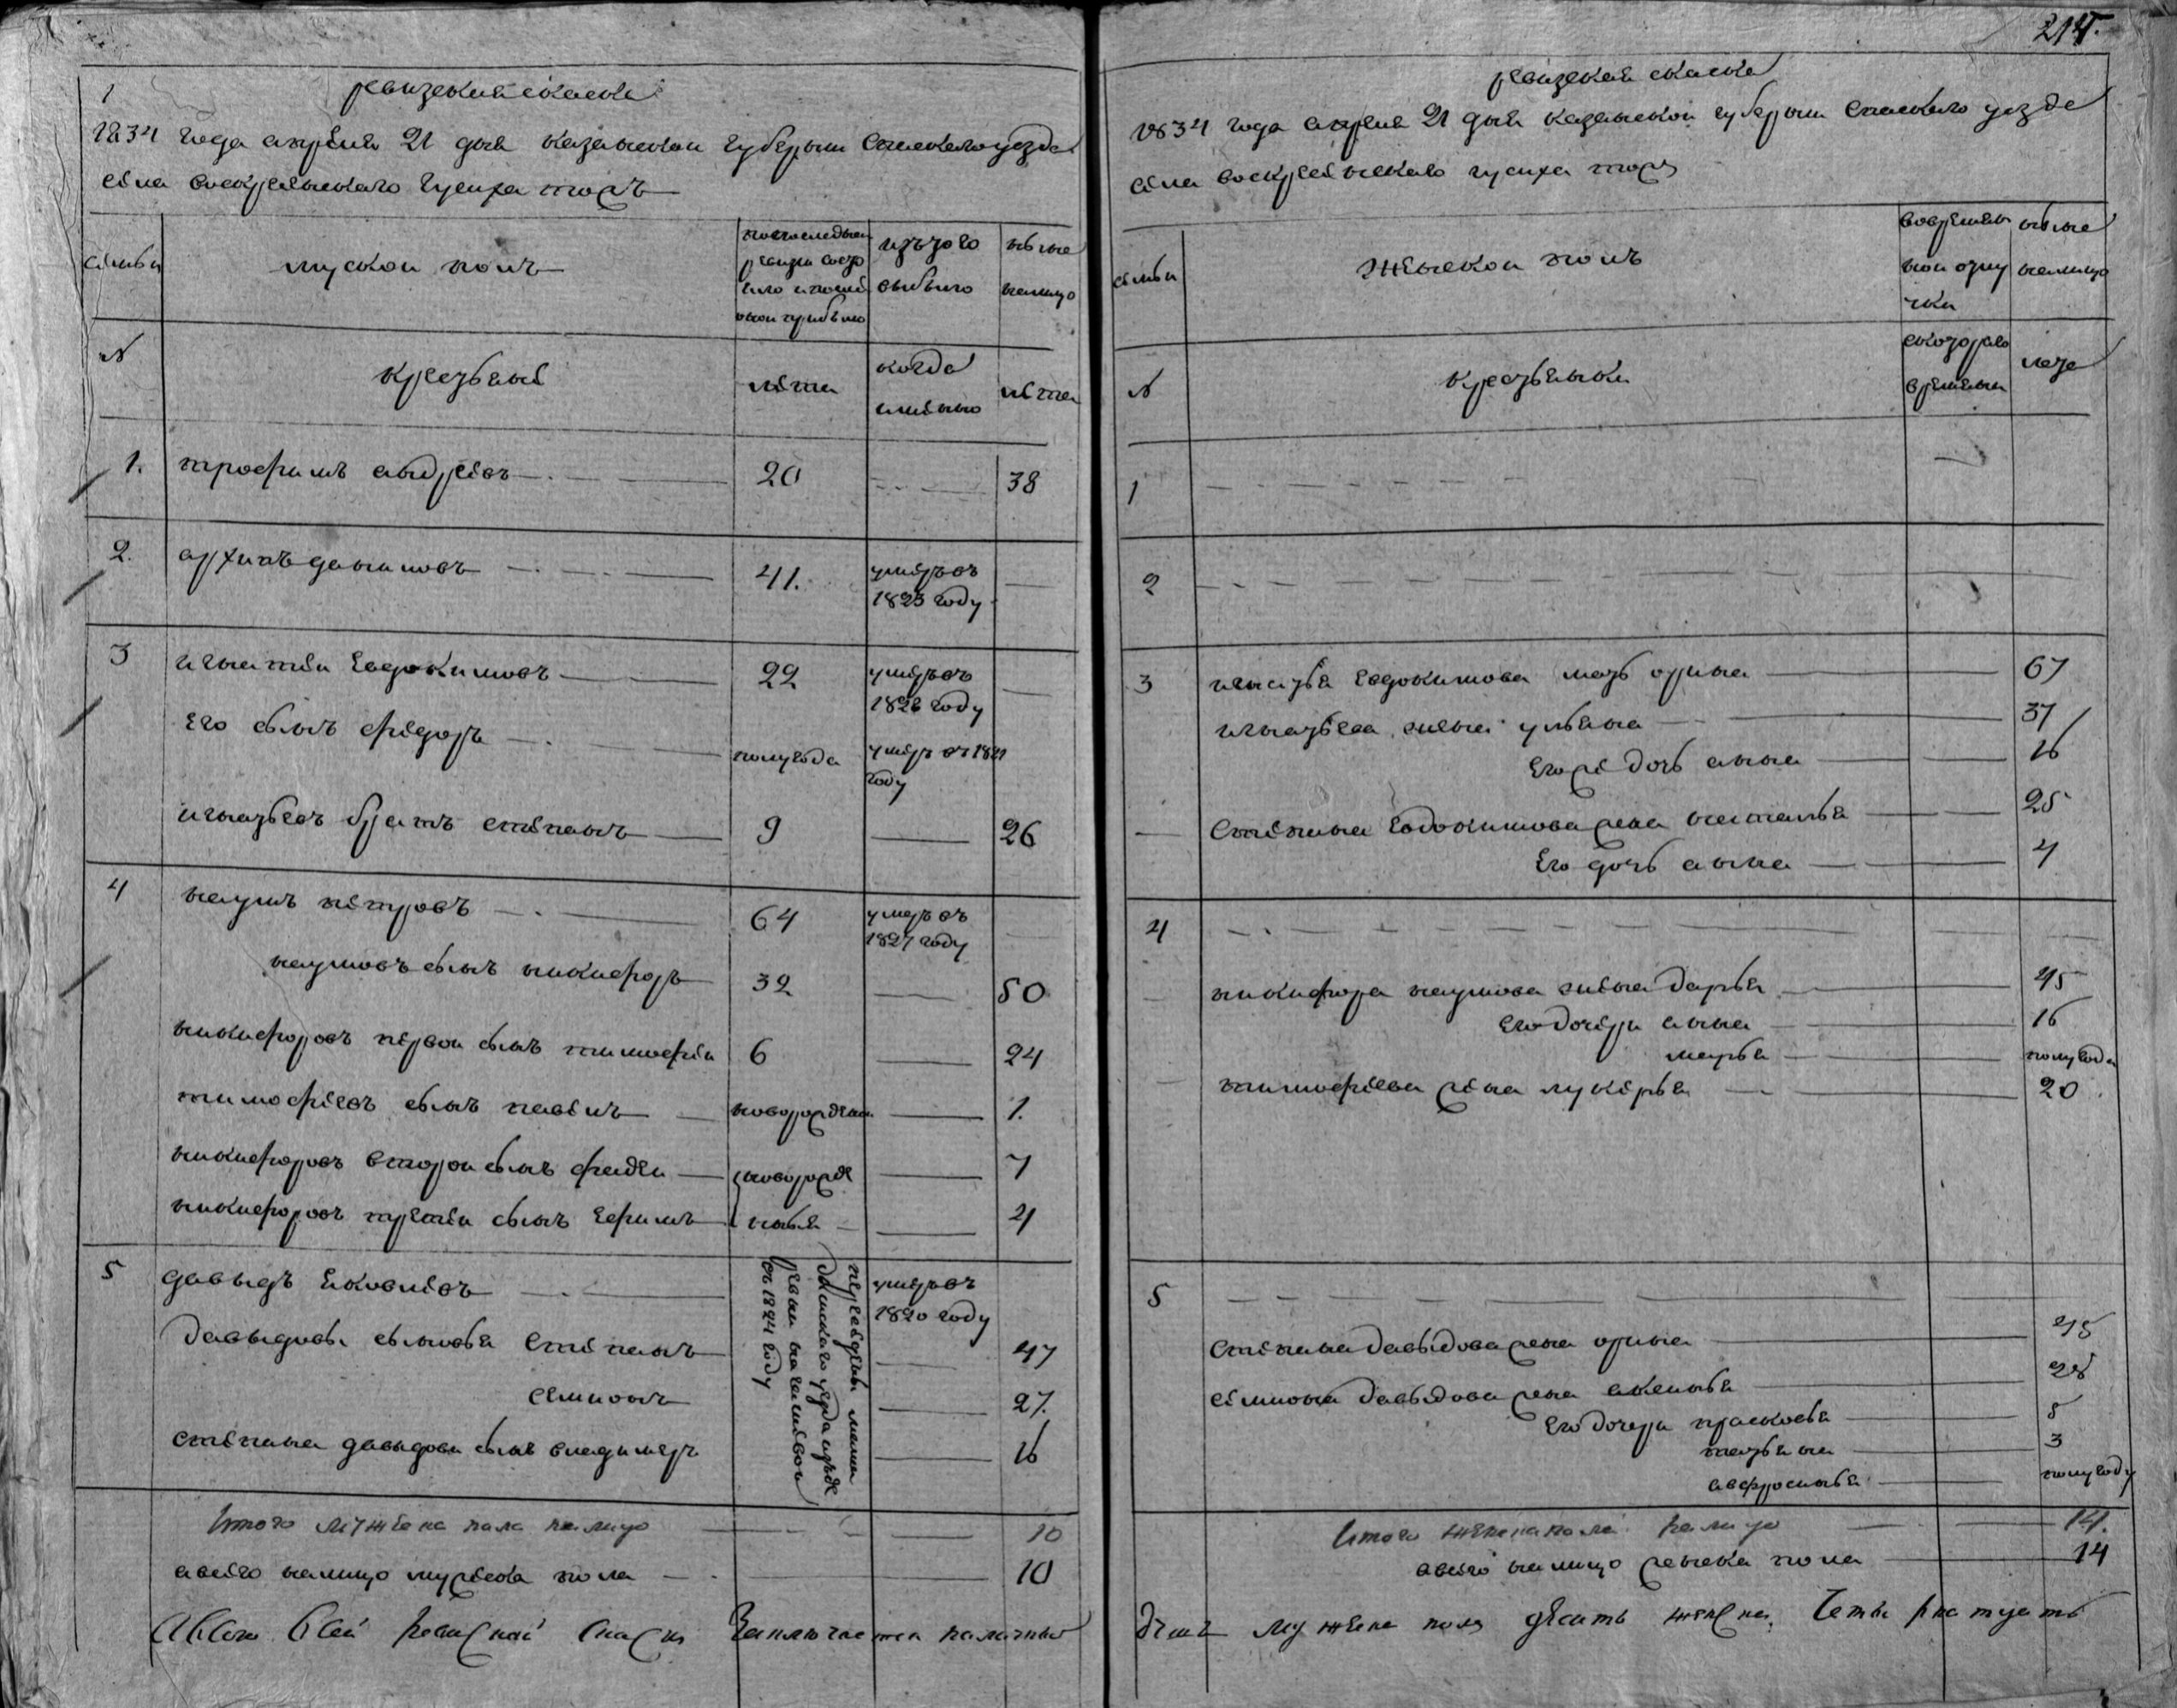 1
ревизская скаска
1834 года апреля 21 дня казанской губернии спаскаго уезда
села воскресенскаго гусиха тожъ
семьи
мускои полъ
попоследнеи
ревизи состо
яло и после
онои прибыло
изътого
выбыло
ныне
налицо
№
крестьяне
лета
когда
имянно
лета
1. трофимъ андреевъ 20 38
2. архипъ даниловъ 41. умеръ въ
1823 году
3 игнатеи Евдокимовъ 22 умеръ въ
1826 году
Его сынъ федоръ полугода умеръ въ 1821
году
игнатьевъ братъ степанъ 9 26
4 наумъ петровъ 64 умеръ въ
1827 году
наумовъ сынъ никифоръ 32 50
никифоровъ первои сынъ тимофеи 6 24
тимофеевъ сынъ павелъ новорожденъ 1.
никифоровъ второи сынъ фадеи новорожде 7
никифоровъ третеи сынъ ефимъ ныя 4
5 давыдъ яковлевъ умеръ въ
1820 году
давыдовы сыновья степанъ 47
семионъ 27.
степана давыдова сынъ владимеръ 16
въ 1824 году
Итого мужеска пола налицо 10
а всего налицо мужеска пола 10
А всего в сей ревизской скаски заключается наличныхъ
214.
ревизская скаска
1834 года апреля 21 дня казанской губернии спаскаго уезда
села воскресенскаго гусиха тожъ
семьи
женскои полъ
вовремян
нои отлу
чки
ныне
налицо
№
крестьянки
скотораго
времяни
лета
1
2
3 игнатья евдокимова мать орина 67
игнатьева жена ульяна 37
Его же дочь анна 16
степана Евдокимова жена наталья 25
Его дочь анна 4
4
никифора наумова жена дарья 45
Его дочери анна 16
марья полугода
тимофеева жена лукерья 20
5
степана давыдова жена орина 45
семиона давыдова жена аксинья 28
Его дочери прасковья 5
татьяна 3
авфросинья полугоду
Итого женска пола налицо 14.
а всего налицо женска пола 14
душъ мужеска пола десять женска четырнатцать